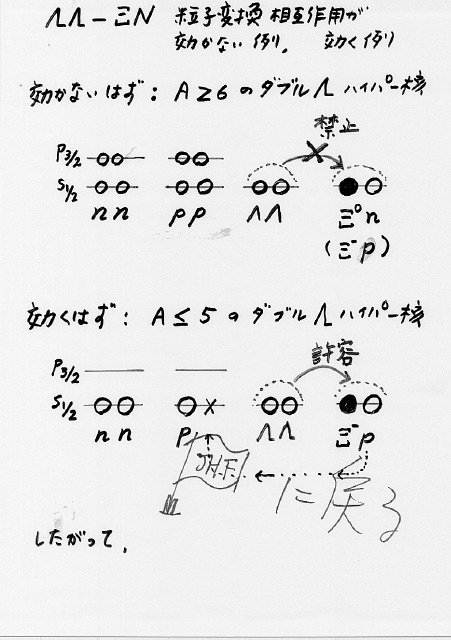 ΛΛ-ΞN 粒子変換相互作用が
効かない例、 効く例
効かないはず: A≥6 のダブルΛハイパー核
禁止
P3/2
S1/2
n n p p Λ Λ Ξ⁰ n
(Ξ⁻p)
効くはず: A≤5 のダブルΛハイパー核
許容
P3/2
S1/2 ×
n n p Λ Λ Ξ⁻ p
J.H.F.
に戻る
したがって、